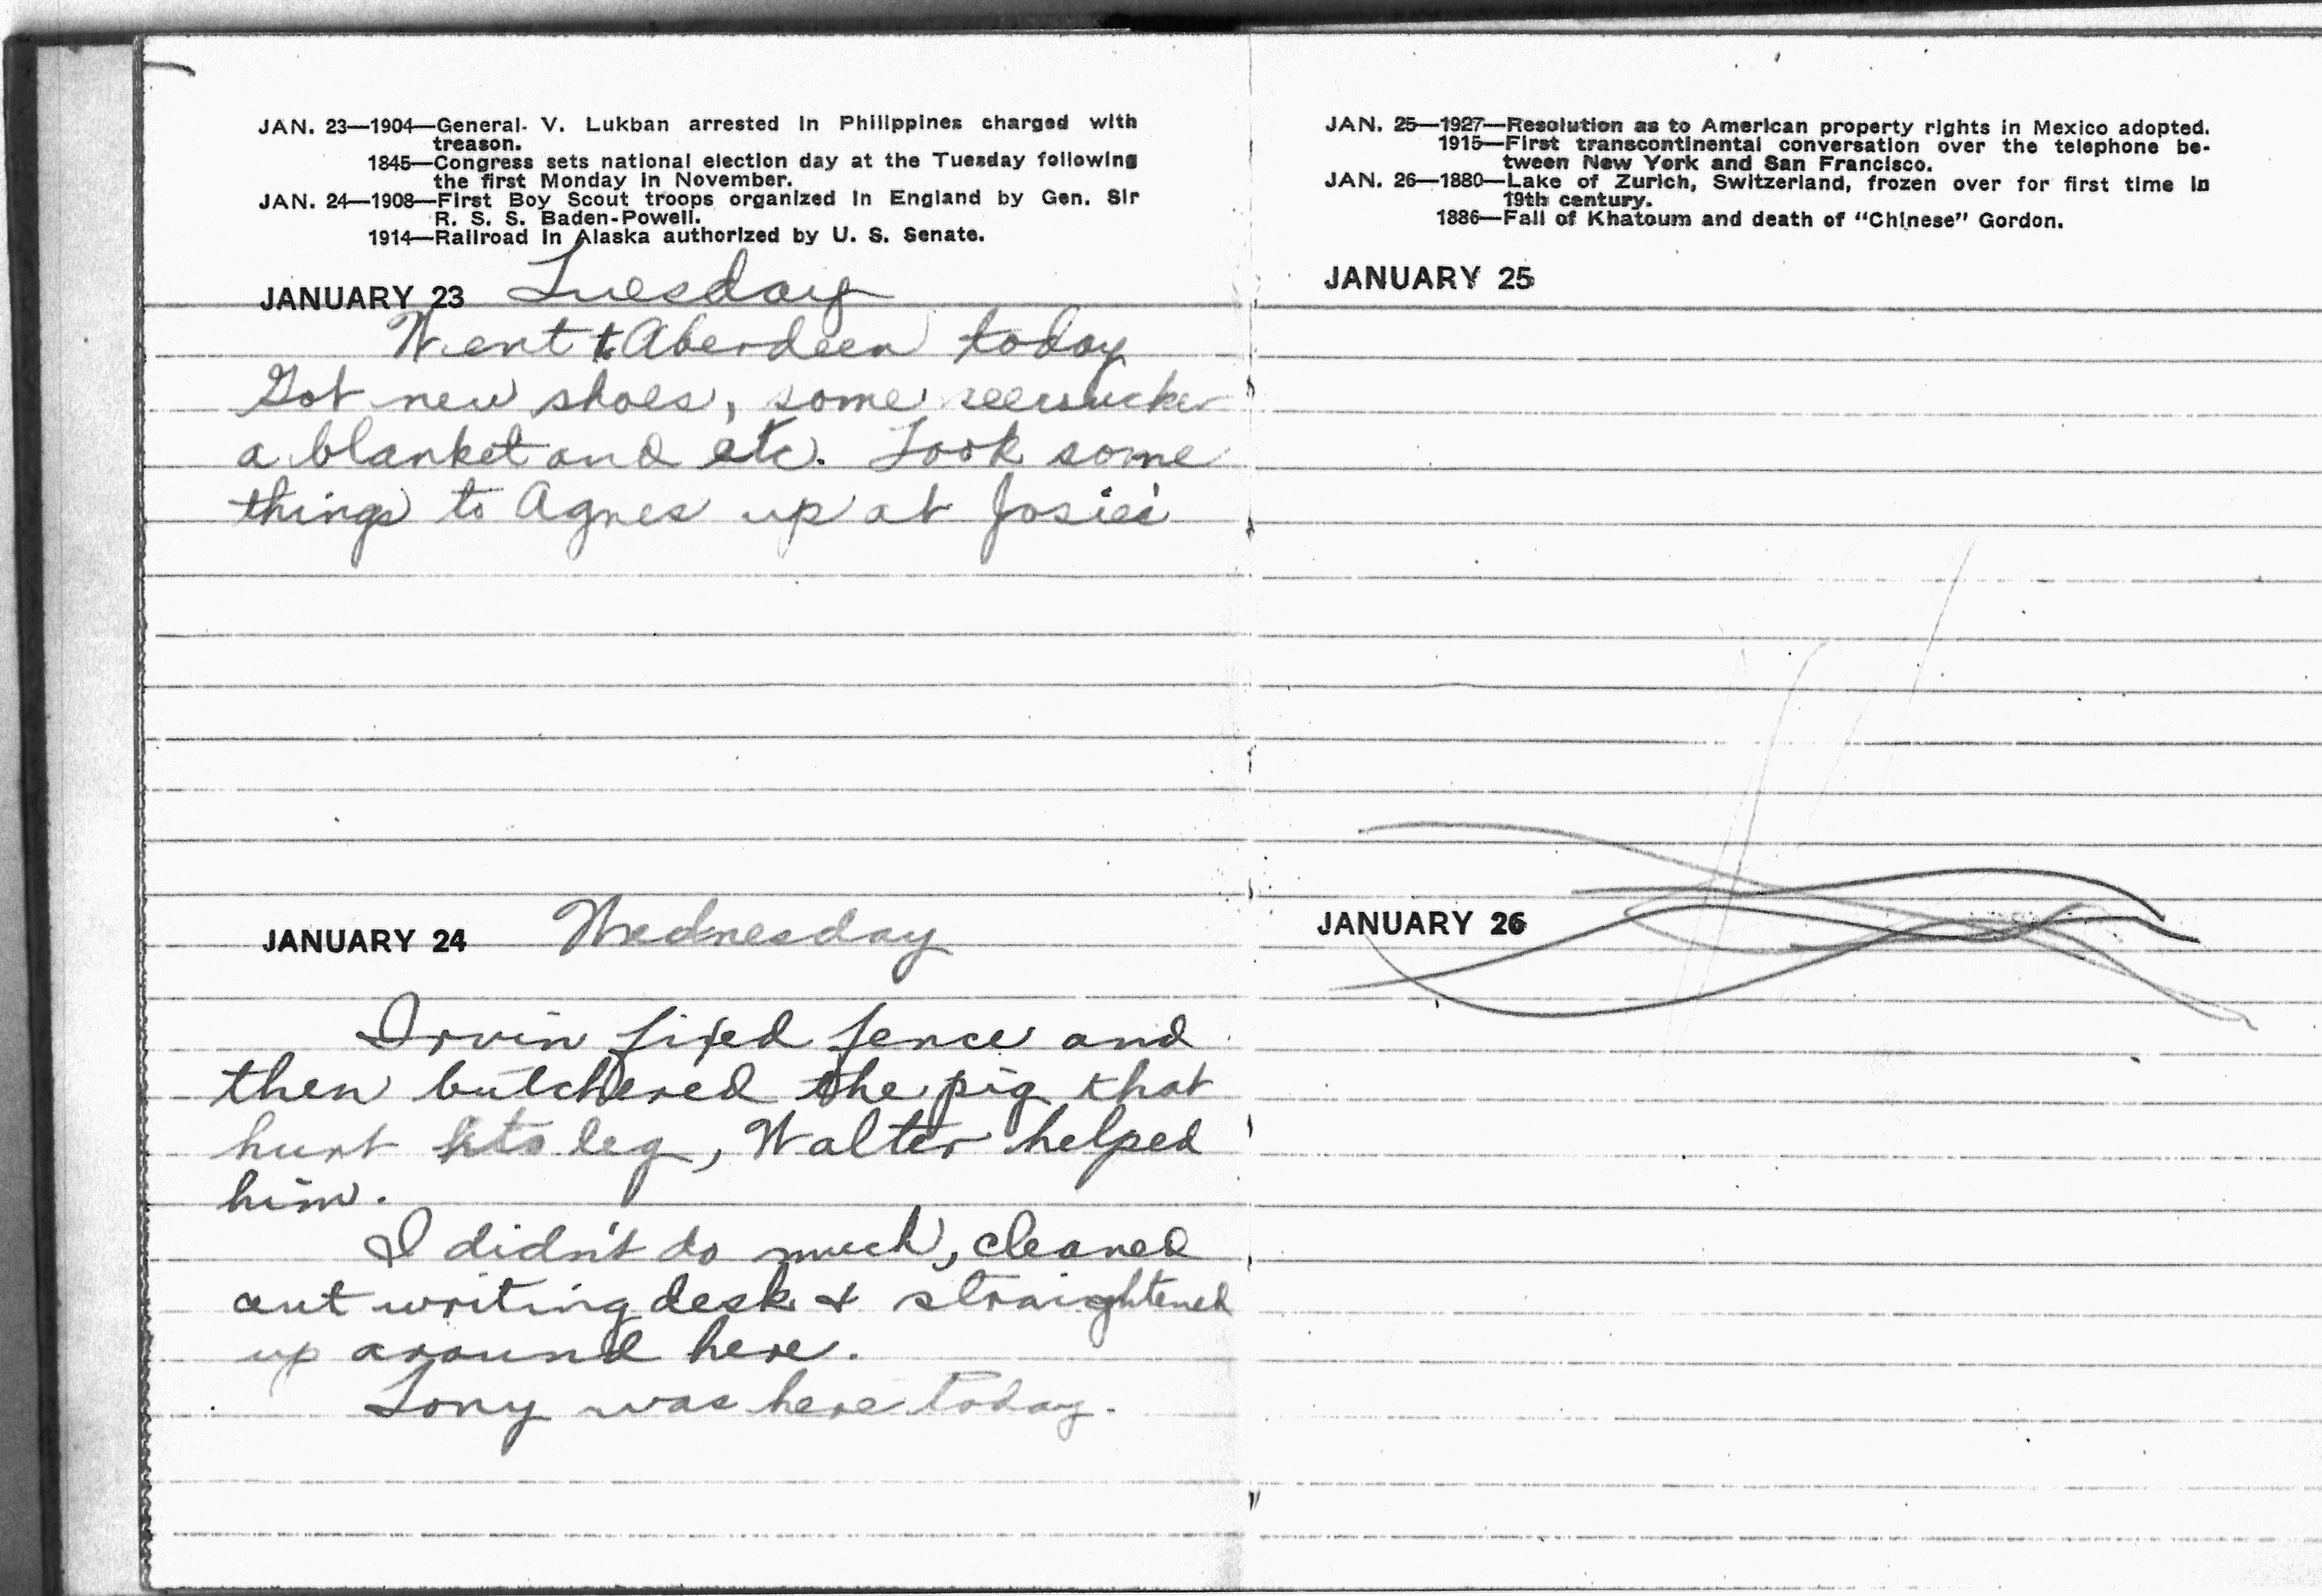 JAN. 23—1904—General. V. Lukban arrested in Philippines charged with
treason.
1845—Congress sets national election day at the Tuesday following
the first Monday in November.
JAN. 24—1908—First Boy Scout troops organized in England by Gen. Sir
R. S. S. Baden-Powell.
1914—Railroad in Alaska authorized by U. S. Senate.
JANUARY 23 Tuesday
Went to Aberdeen today
Got new shoes, some seersucker
a blanket and etc. Took some
things to Agnes up at Josies'
JANUARY 24 Wednesday
Irvin fixed fence and
then butchered the pig that
hurt its leg, Walter helped
him.
I didn't do much, cleaned
out writing desk & straightened
up around here.
Tony was here today.
JAN. 25—1927—Resolution as to American property rights in Mexico adopted.
1915—First transcontinental conversation over the telephone be-
tween New York and San Francisco.
JAN. 26—1880—Lake of Zurich, Switzerland, frozen over for first time in
19th century.
1886—Fall of Khatoum and death of "Chinese" Gordon.
JANUARY 25
JANUARY 26